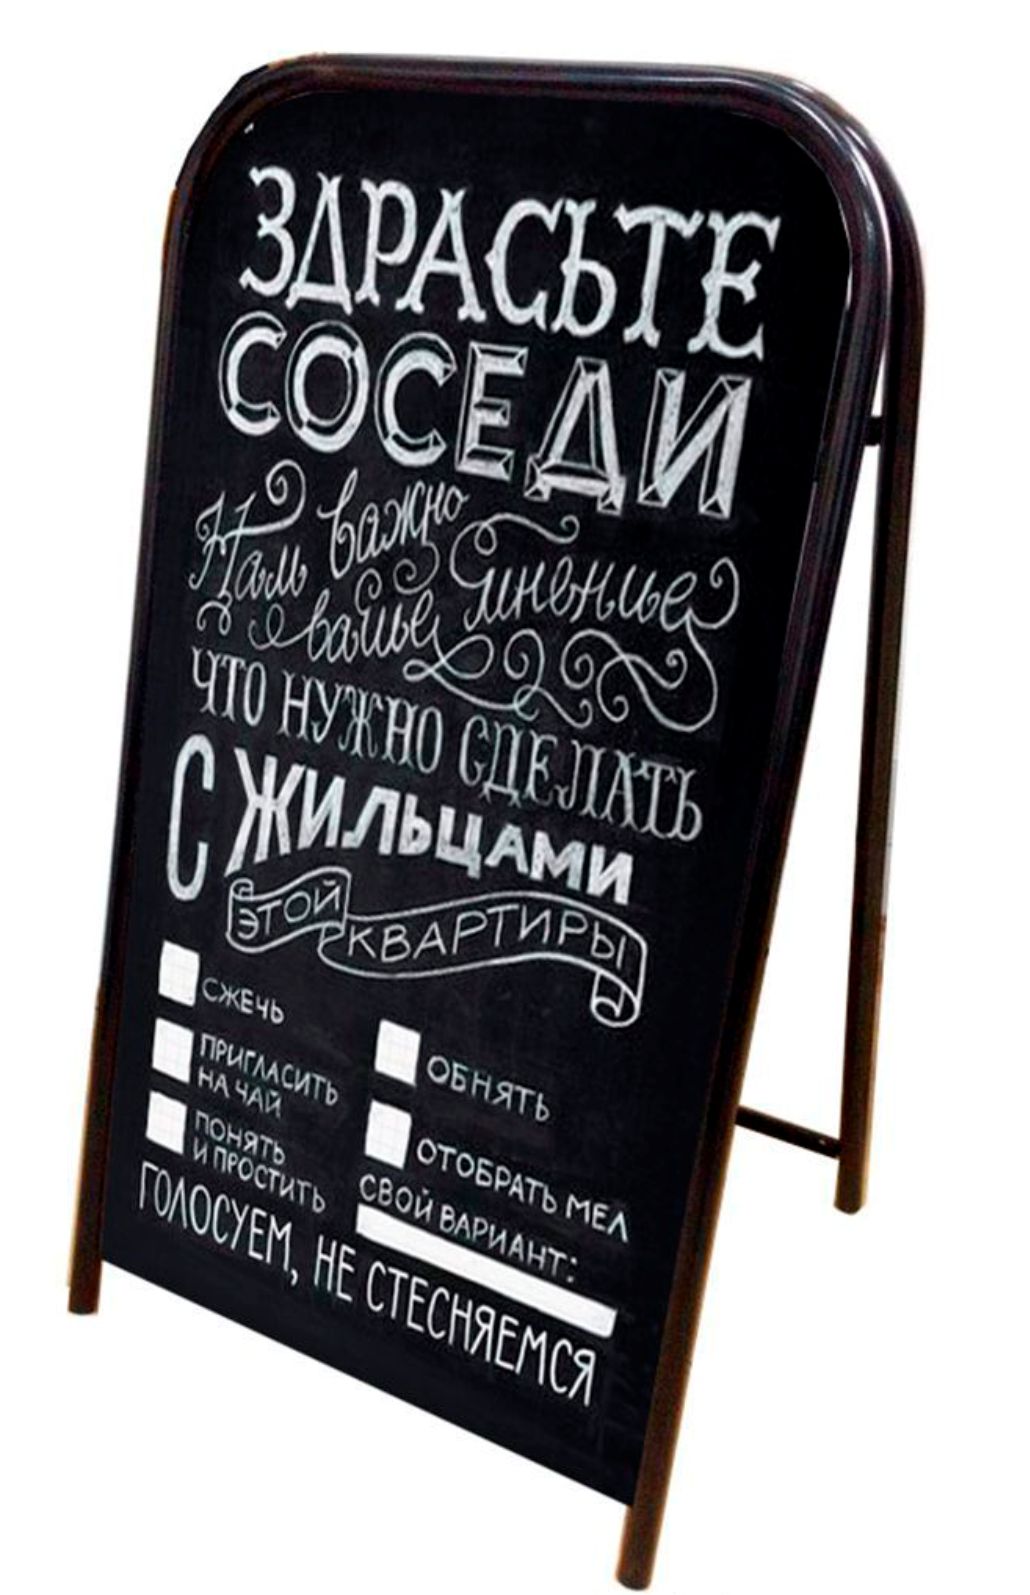 ЗДРАСЬТЕ
СОСЕДИ
Нам важно
ваше мнение
ЧТО НУЖНО СДЕЛАТЬ
С ЖИЛЬЦАМИ
ЭТОЙ КВАРТИРЫ
СЖЕЧЬ
ПРИГЛАСИТЬ
НА ЧАЙ
ПОНЯТЬ
И ПРОСТИТЬ
ОБНЯТЬ
ОТОБРАТЬ МЕЛ
СВОЙ ВАРИАНТ:
ГОЛОСУЕМ, НЕ СТЕСНЯЕМСЯ